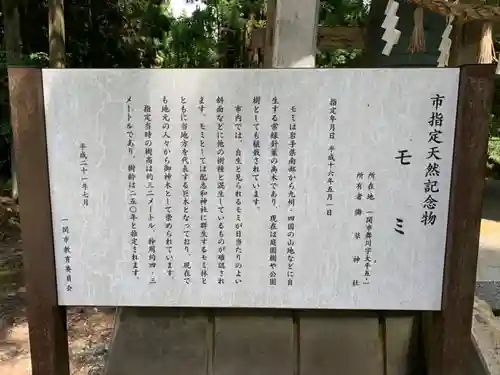 市指定天然記念物
モミ
所在地 一関市舞川字大平五
所有者 御草神社
指定年月日 平成十六年五月一日
モミは岩手県南部から九州・四国の山地などに自
生する常緑針葉の高木であり、現在は庭園樹や公園
樹としても植栽されています。
市内では、自生と見られるモミが日当たりのよい
斜面などに他の樹種と混生しているものが確認され
ます。モミとしては配志和神社に群生するモミ林と
ともに当地方を代表する巨木となっており、現在で
も地元の人々から御神木として崇められています。
指定当時の樹高は約三二メートル、幹周約四・三
メートルであり、樹齢は二五〇年と推定されます。
平成二十一年七月
一関市教育委員会